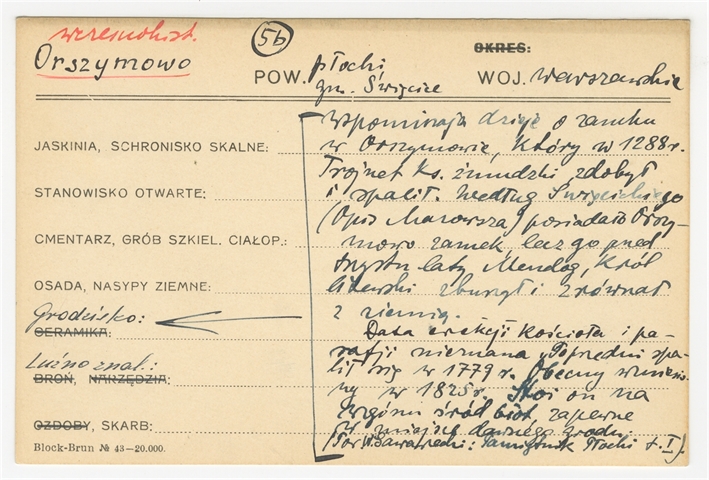 wczesnohist.
Orszymowo
56
OKRES:
POW. płocki
gm. Święcice
WOJ. warszawskie
JASKINIA, SCHRONISKO SKALNE:
STANOWISKO OTWARTE:
CMENTARZ, GRÓB SZKIEL. CIAŁOP.:
OSADA, NASYPY ZIEMNE:
Grodzisko:
CERAMIKA:
Luźno znal.:
BROŃ, NARZĘDZIA:
OZDOBY, SKARB:
Block-Brun № 43-20.000.
Wspominają dzieje o zamku
w Orszymowie, który w 1288 r.
Trojnat ks. żmudzki zdobył
i spalił. Według Święcickiego
(Opis Mazowsza) posiadało Orszy-
mowo zamek lecz go przed
trzystu laty Mendog, Król
litewski zburzył i zrównał
z ziemią.
Data erekcji kościoła i pa-
rafji nieznana. Poprzedni spa-
lił się w 1779 r. Obecny wzniesio-
ny w 1825 r. Stoi on na
wzgórzu śród błot zapewne
w miejscu dawnego grodu.
(Por. W. : Pamiętnik Płocki t. I).